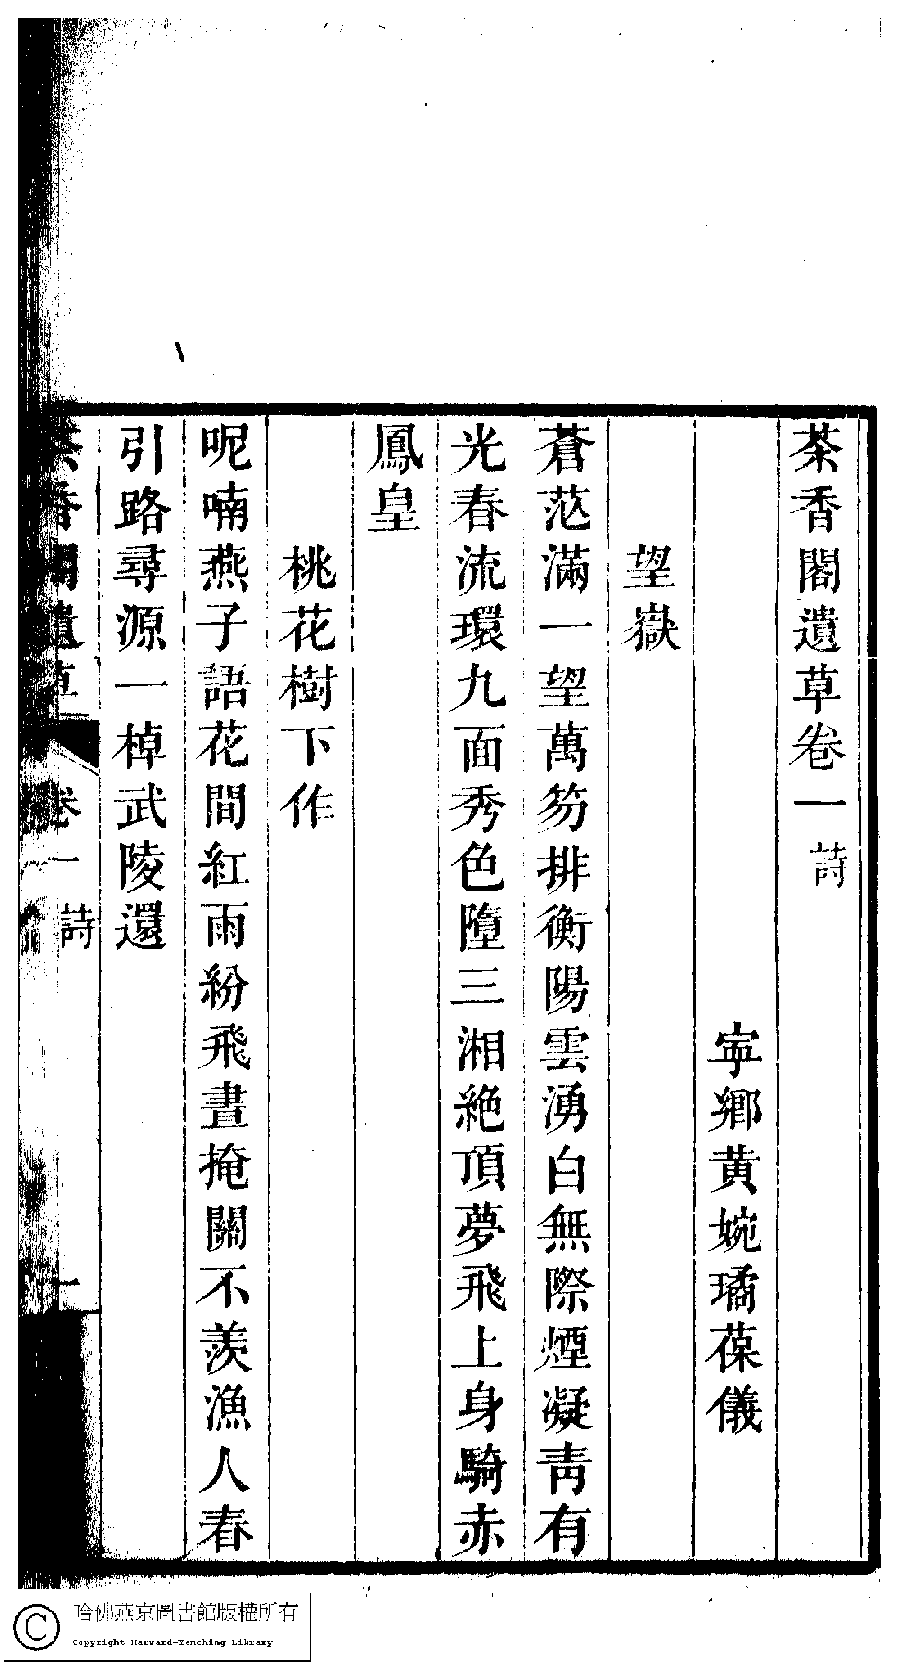 茶香閣遺草卷一 詩
寧鄉黄婉璚葆儀
望嶽
蒼茫滿一望萬笏排衡陽雲湧白無際煙凝青有
光春流環九面秀色墮三湘絶頂夢飛上身騎赤
鳳皇
桃花樹下作
呢喃燕子語花間紅雨紛飛晝掩關不羨漁人春
引路尋源一棹武陵還
茶香閣遺草 卷一 詩 一
哈佛燕京圖書館版權所有
Copyright Harvard-Yenching Library